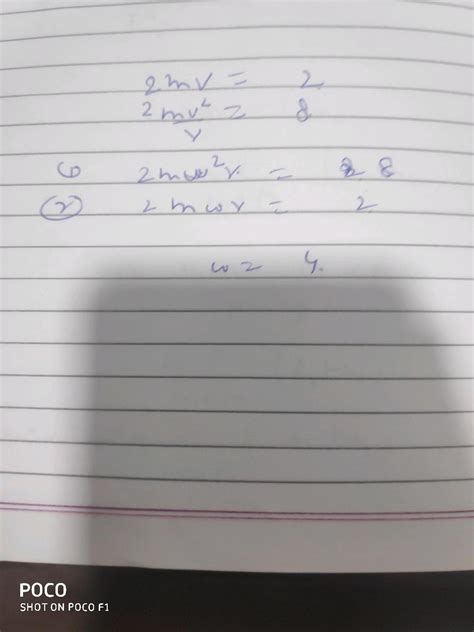 2mv = 2
2mv²/r = 8
2mω²r = 8
② 2mωr = 2
ω = 4.
POCO
SHOT ON POCO F1